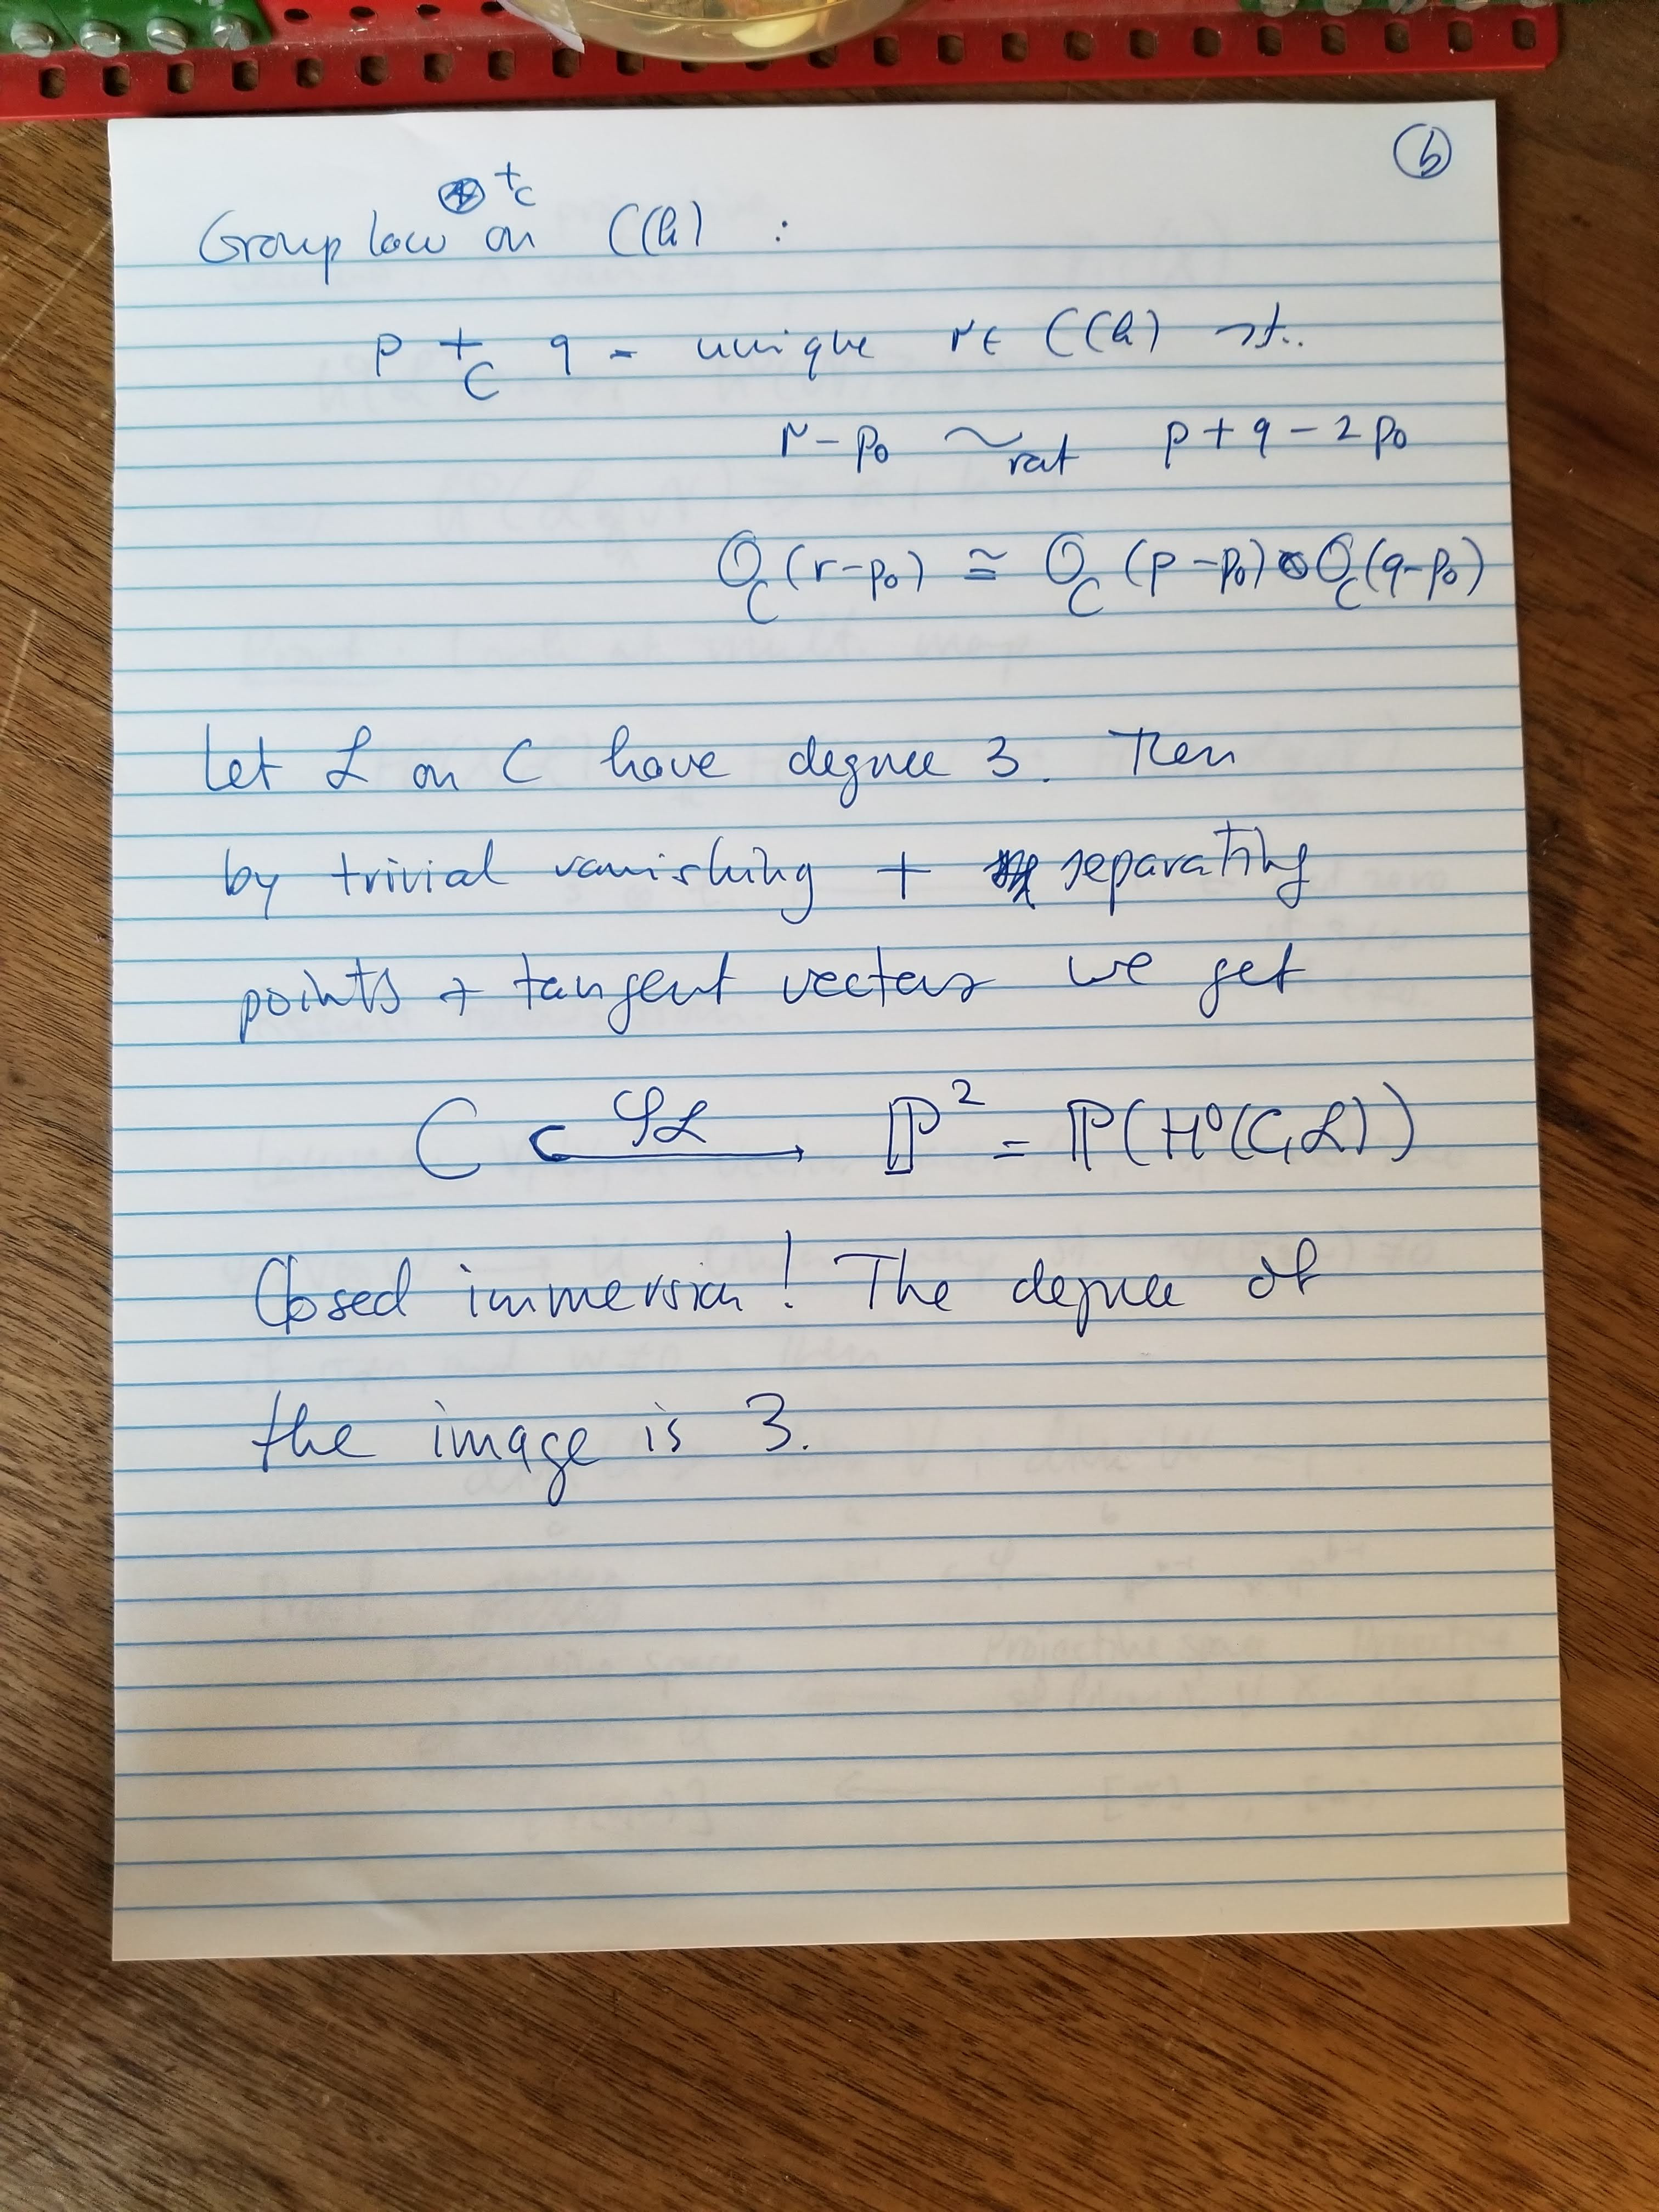 6
Group law +_C on C(k) :
p +_C q = unique r ∈ C(k) s.t.
r - p_0 ~_rat p + q - 2 p_0
O_C(r-p_0) ≅ O_C(p-p_0) ⊗ O_C(q-p_0)
Let ℒ on C have degree 3. Then
by trivial vanishing + separating
points + tangent vectors we get
C ↪ φ_ℒ ℙ² = ℙ(H⁰(C,ℒ))
Closed immersion! The degree of
the image is 3.